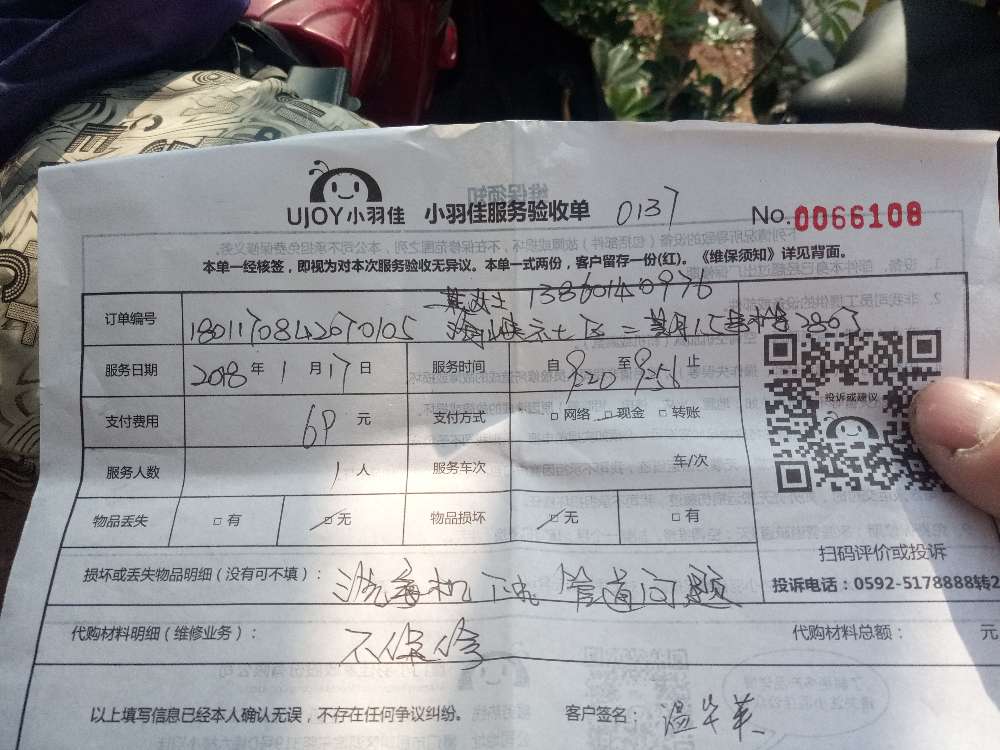 UJOY小羽佳 小羽佳服务验收单 0137 No.0066108
本单一经核签，即视为对本次服务验收无异议。本单一式两份，客户留存一份(红)。《维保须知》详见背面。
女士 13860140976
订单编号 1801170842670105
服务日期 2018 年 1 月 17 日 服务时间 自 9:20 至 9:56 止
投诉或建议
支付费用 69 元 支付方式 □ 网络 □ 现金 □ 转账
服务人数 1 人 服务车次 车/次
物品丢失 □ 有 □ 无 物品损坏 □ 无 □ 有
扫码评价或投诉
投诉电话：0592-5178888转2
损坏或丢失物品明细（没有可不填）： 管道问题
代购材料明细（维修业务）： 不保修 代购材料总额： 元
以上填写信息已经本人确认无误，不存在任何争议纠纷。 客户签名： 温华英